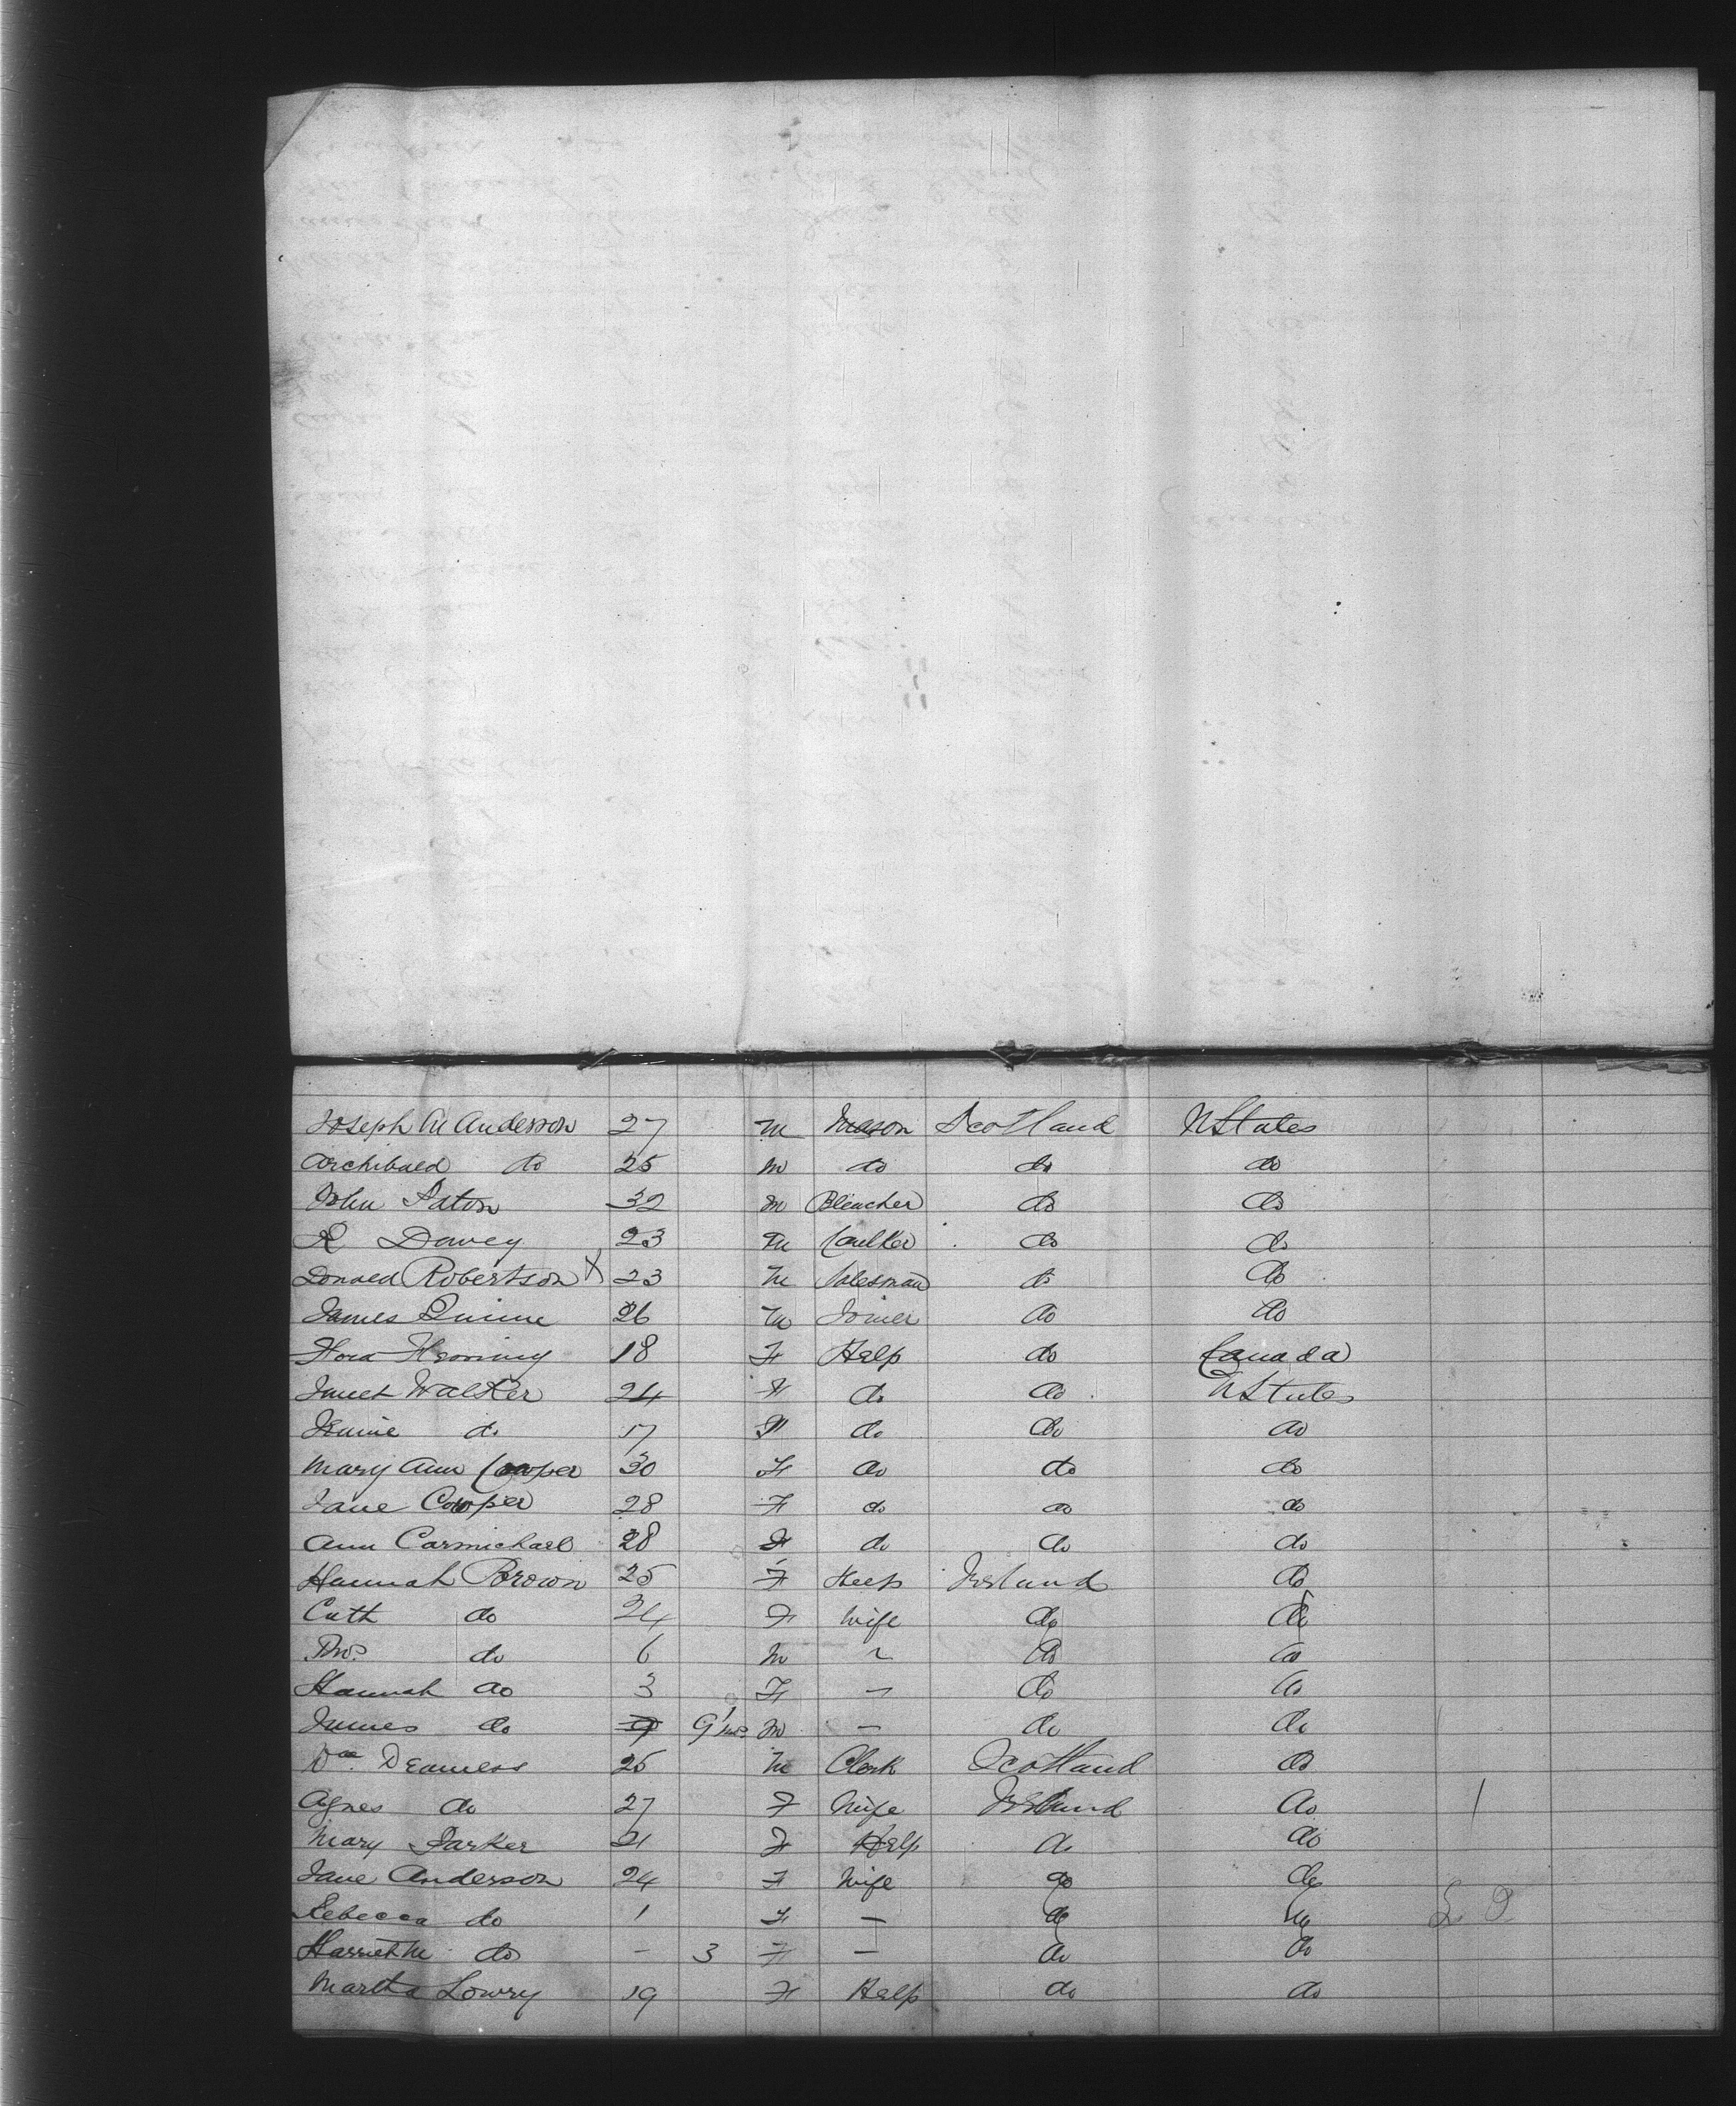 Joseph M Anderson 27 M Mason Scotland U States
Archibald do 25 M do do do
John Paton 32 M Bleacher do do
R Davey 23 M Caulker do do
Donald Robertson X 23 M Salesman do do
James Quinn 26 M Joiner do do
Flora Fleming 18 F Help do Canada
Janet Walker 24 F do do U States
Jeanie do 17 F do do do
Mary Ann Cowper 30 F do do do
Jane Cowper 28 F do do do
Ann Carmichael 28 F do do do
Hannah Brown 25 F Help Ireland do
Cath do 34 F Wife do do
Thos do 6 M do do
Hannah do 3 F — do do
James do 9 9 mos M — do do
Wm Deamess 25 M Clerk Scotland do
Agnes do 27 F Wife Ireland do
Mary Parker 21 F Help do do
Jane Anderson 24 F Wife do do
Rebecca do 1 F — do do
Harriet M do - 3 F — do do
Martha Lowry 19 F Help do do